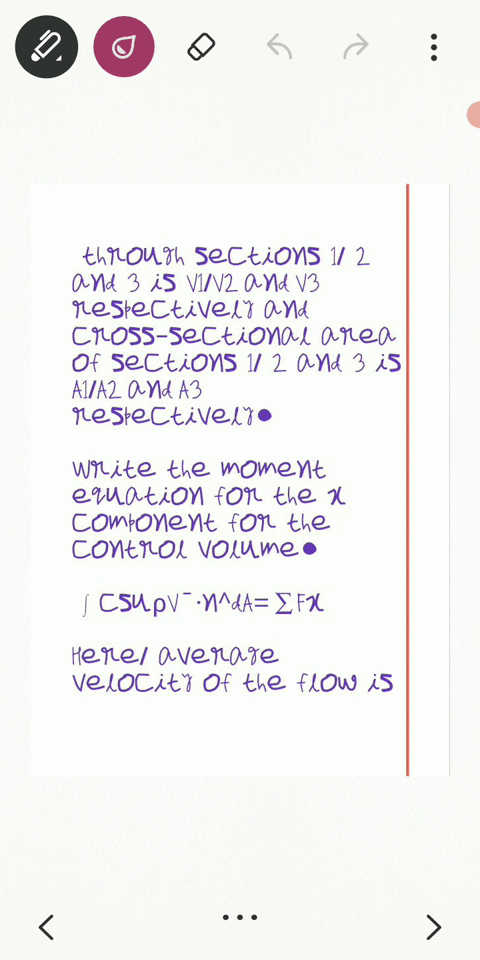 through sections 1/ 2
and 3 is V1/V2 and V3
respectively and
cross-sectional area
of sections 1/ 2 and 3 is
A1/A2 and A3
respectively●
Write the moment
equation for the x
component for the
control volume●
∫ CSuρV¯·n^dA= ∑Fx
Here/ average
velocity of the flow is